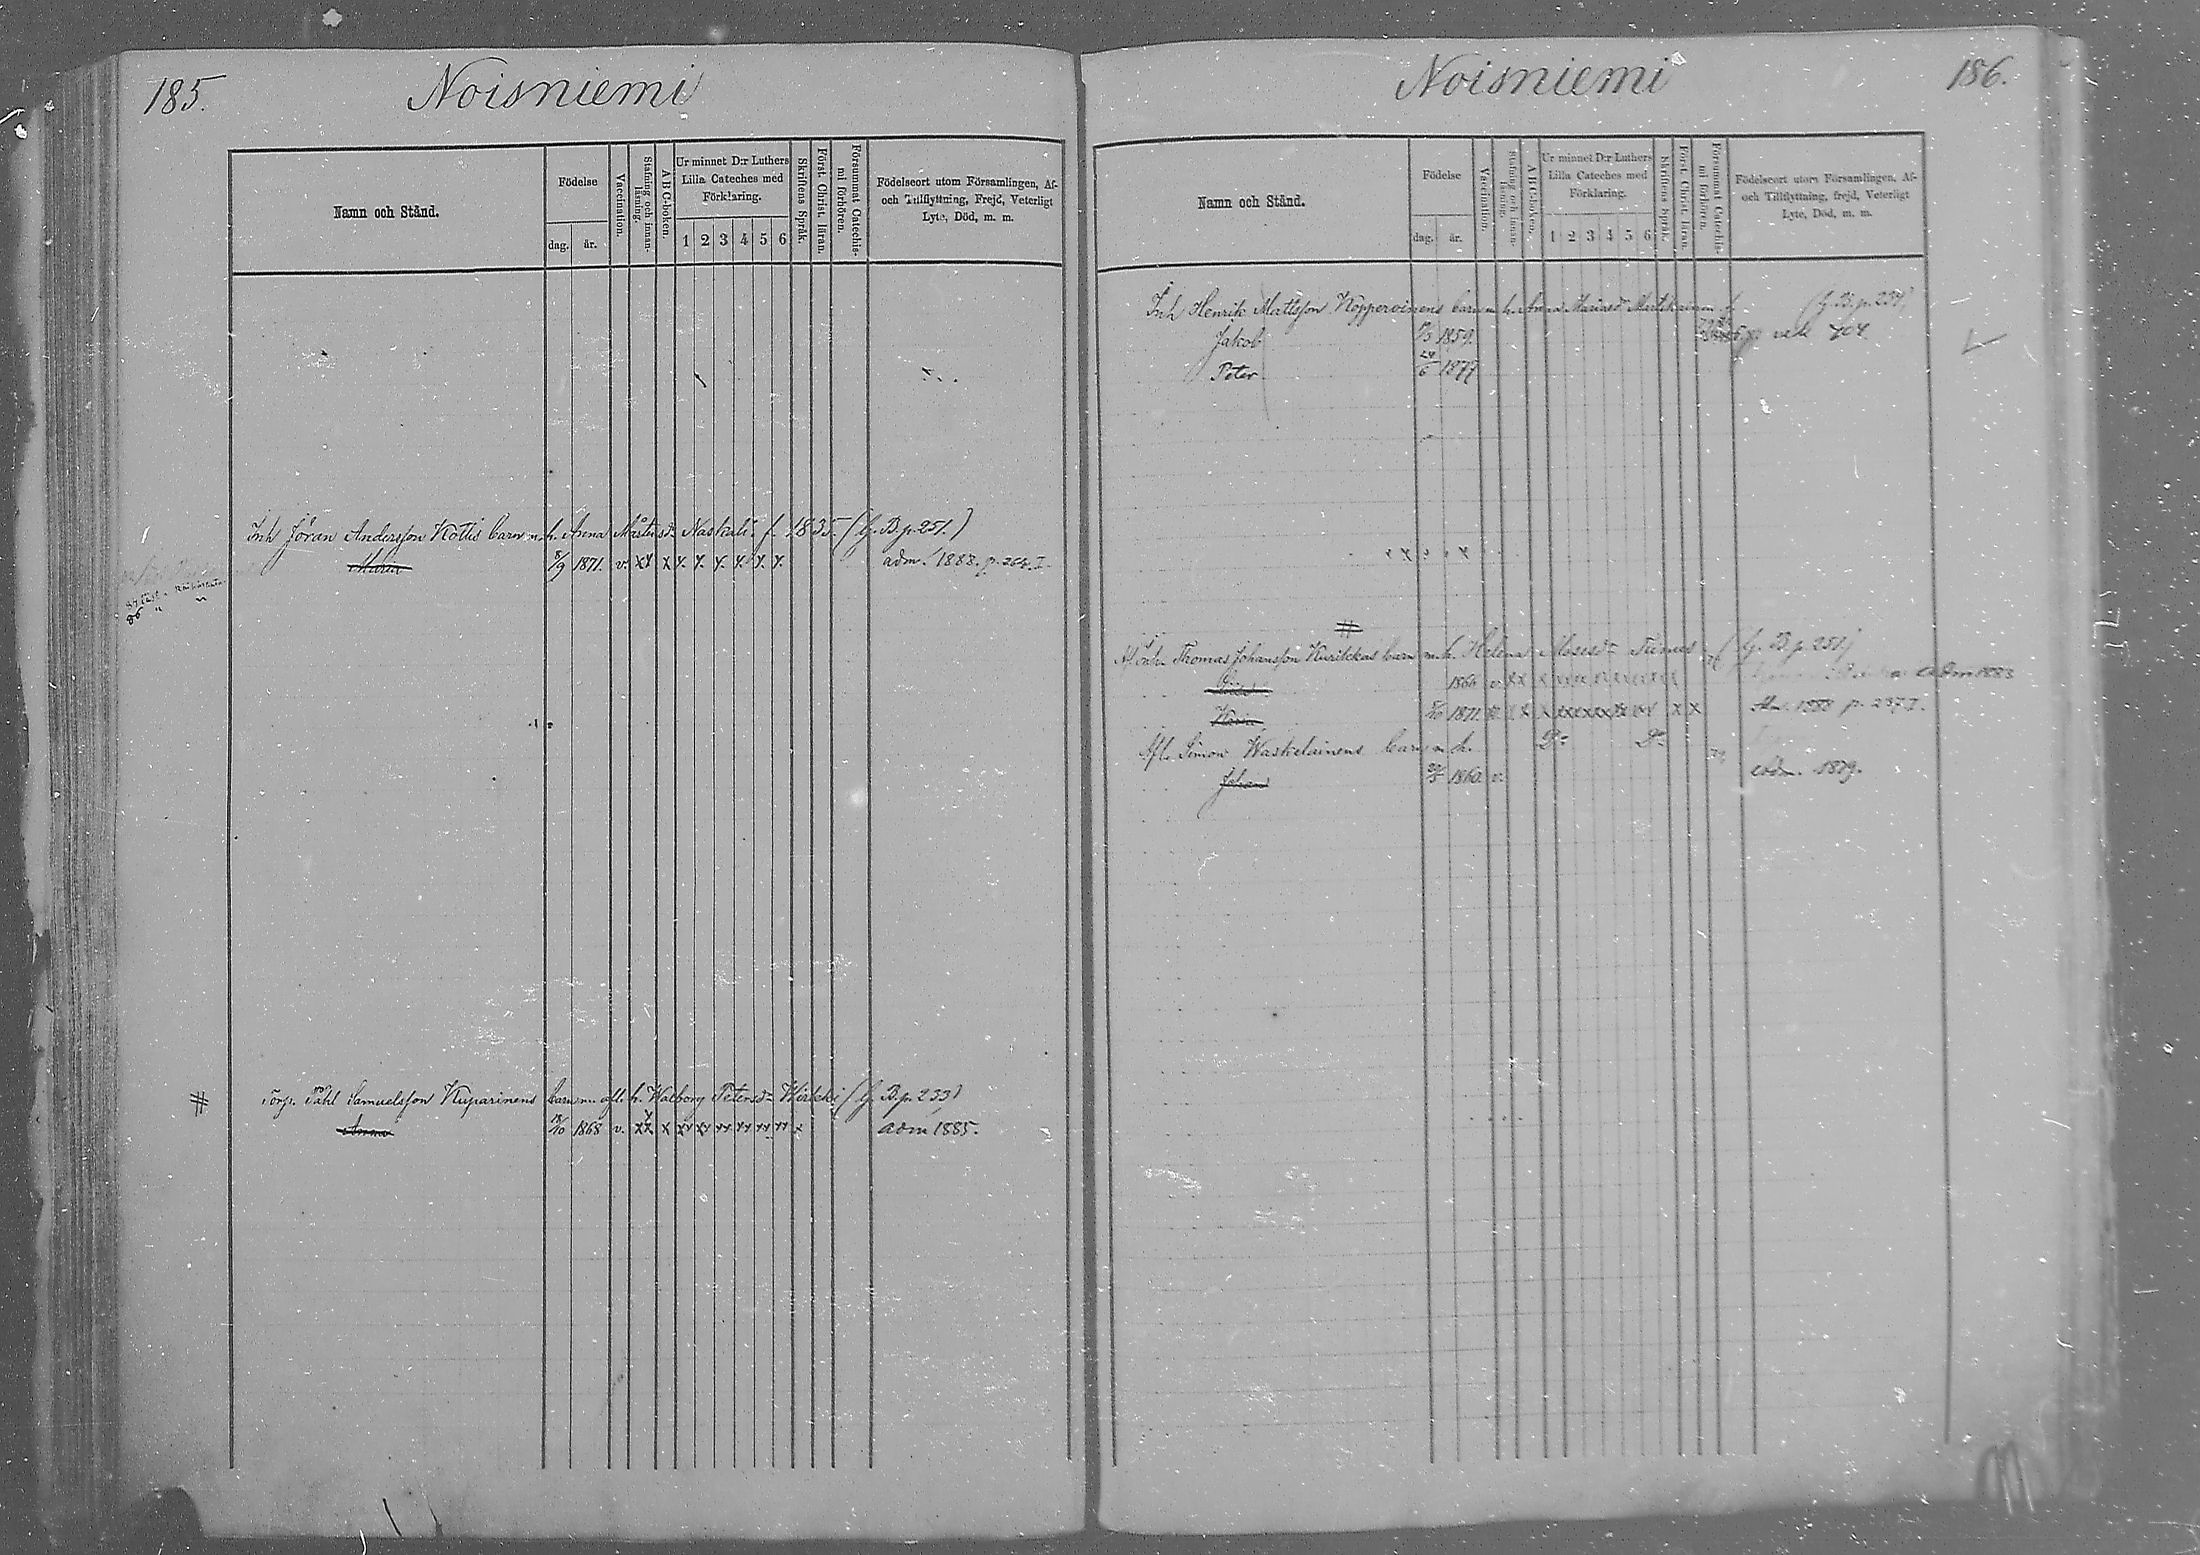 185.
Noisniemi
Namn och Stånd.
Födelse
dag.
år.
Vaccination.
Stafning och innan-
läsning.
A B C-boken.
Ur minnet D:r Luthers
Lilla Cateches med
Förklaring.
1 2 3 4 5 6
Skriftens Språk.
Först. Christ. läran.
Försummat Catechis-
mi förhören.
Födelseort utom Församlingen, Af-
och Tillflyttning, Frejd, Veterligt
Lyte, Död, m. m.
Inh Jöran Andersson Kottis barn m. h. Anna Mårtensdr Naskali f. 1835 (C. B. p. 251.)
Maria 8/9 1871. v. xx x x. x. x. x. x. x. adm. 1888. p. 264. I.
86 " "
# Torp. Påhl Samuelsson Kuparinens barn m. afl. h. Walborg Petersdr Wirkki (C. B. p. 253)
Anna 18/10 1868 v. xx x xx xx xx xx xx xx x adm 1885.
Noisniemi
186.
Namn och Stånd.
Födelse
dag.
år.
Vaccination.
Stafning och innan-
läsning.
A B C-boken.
Ur minnet D:r Luthers
Lilla Cateches med
Förklaring.
1 2 3 4 5 6
Skriftens Språk.
Först. Christ. läran.
Försummat Catechis-
mi förhören.
Födelseort utom Församlingen, Af-
och Tillflyttning, frejd, Veterligt
Lyte, Död, m. m.
Inh Henrik Mattsson Kopperoinens barn m. h. Anna f. (C. B. p. 251)
Jakob 1859. 404.
Peter 24/6 1877
#
Afl. Inh. Thomas Johansson Kurikkas barn m. h. Helena Mosesdr (C. B. p. 251)
v. xx x adm 1883
Karin 1871. x x x x p. 237. I.
Afl. Simon Waskelainens barn m. h. Do Do
Johan 1860. v. adm. 1879.